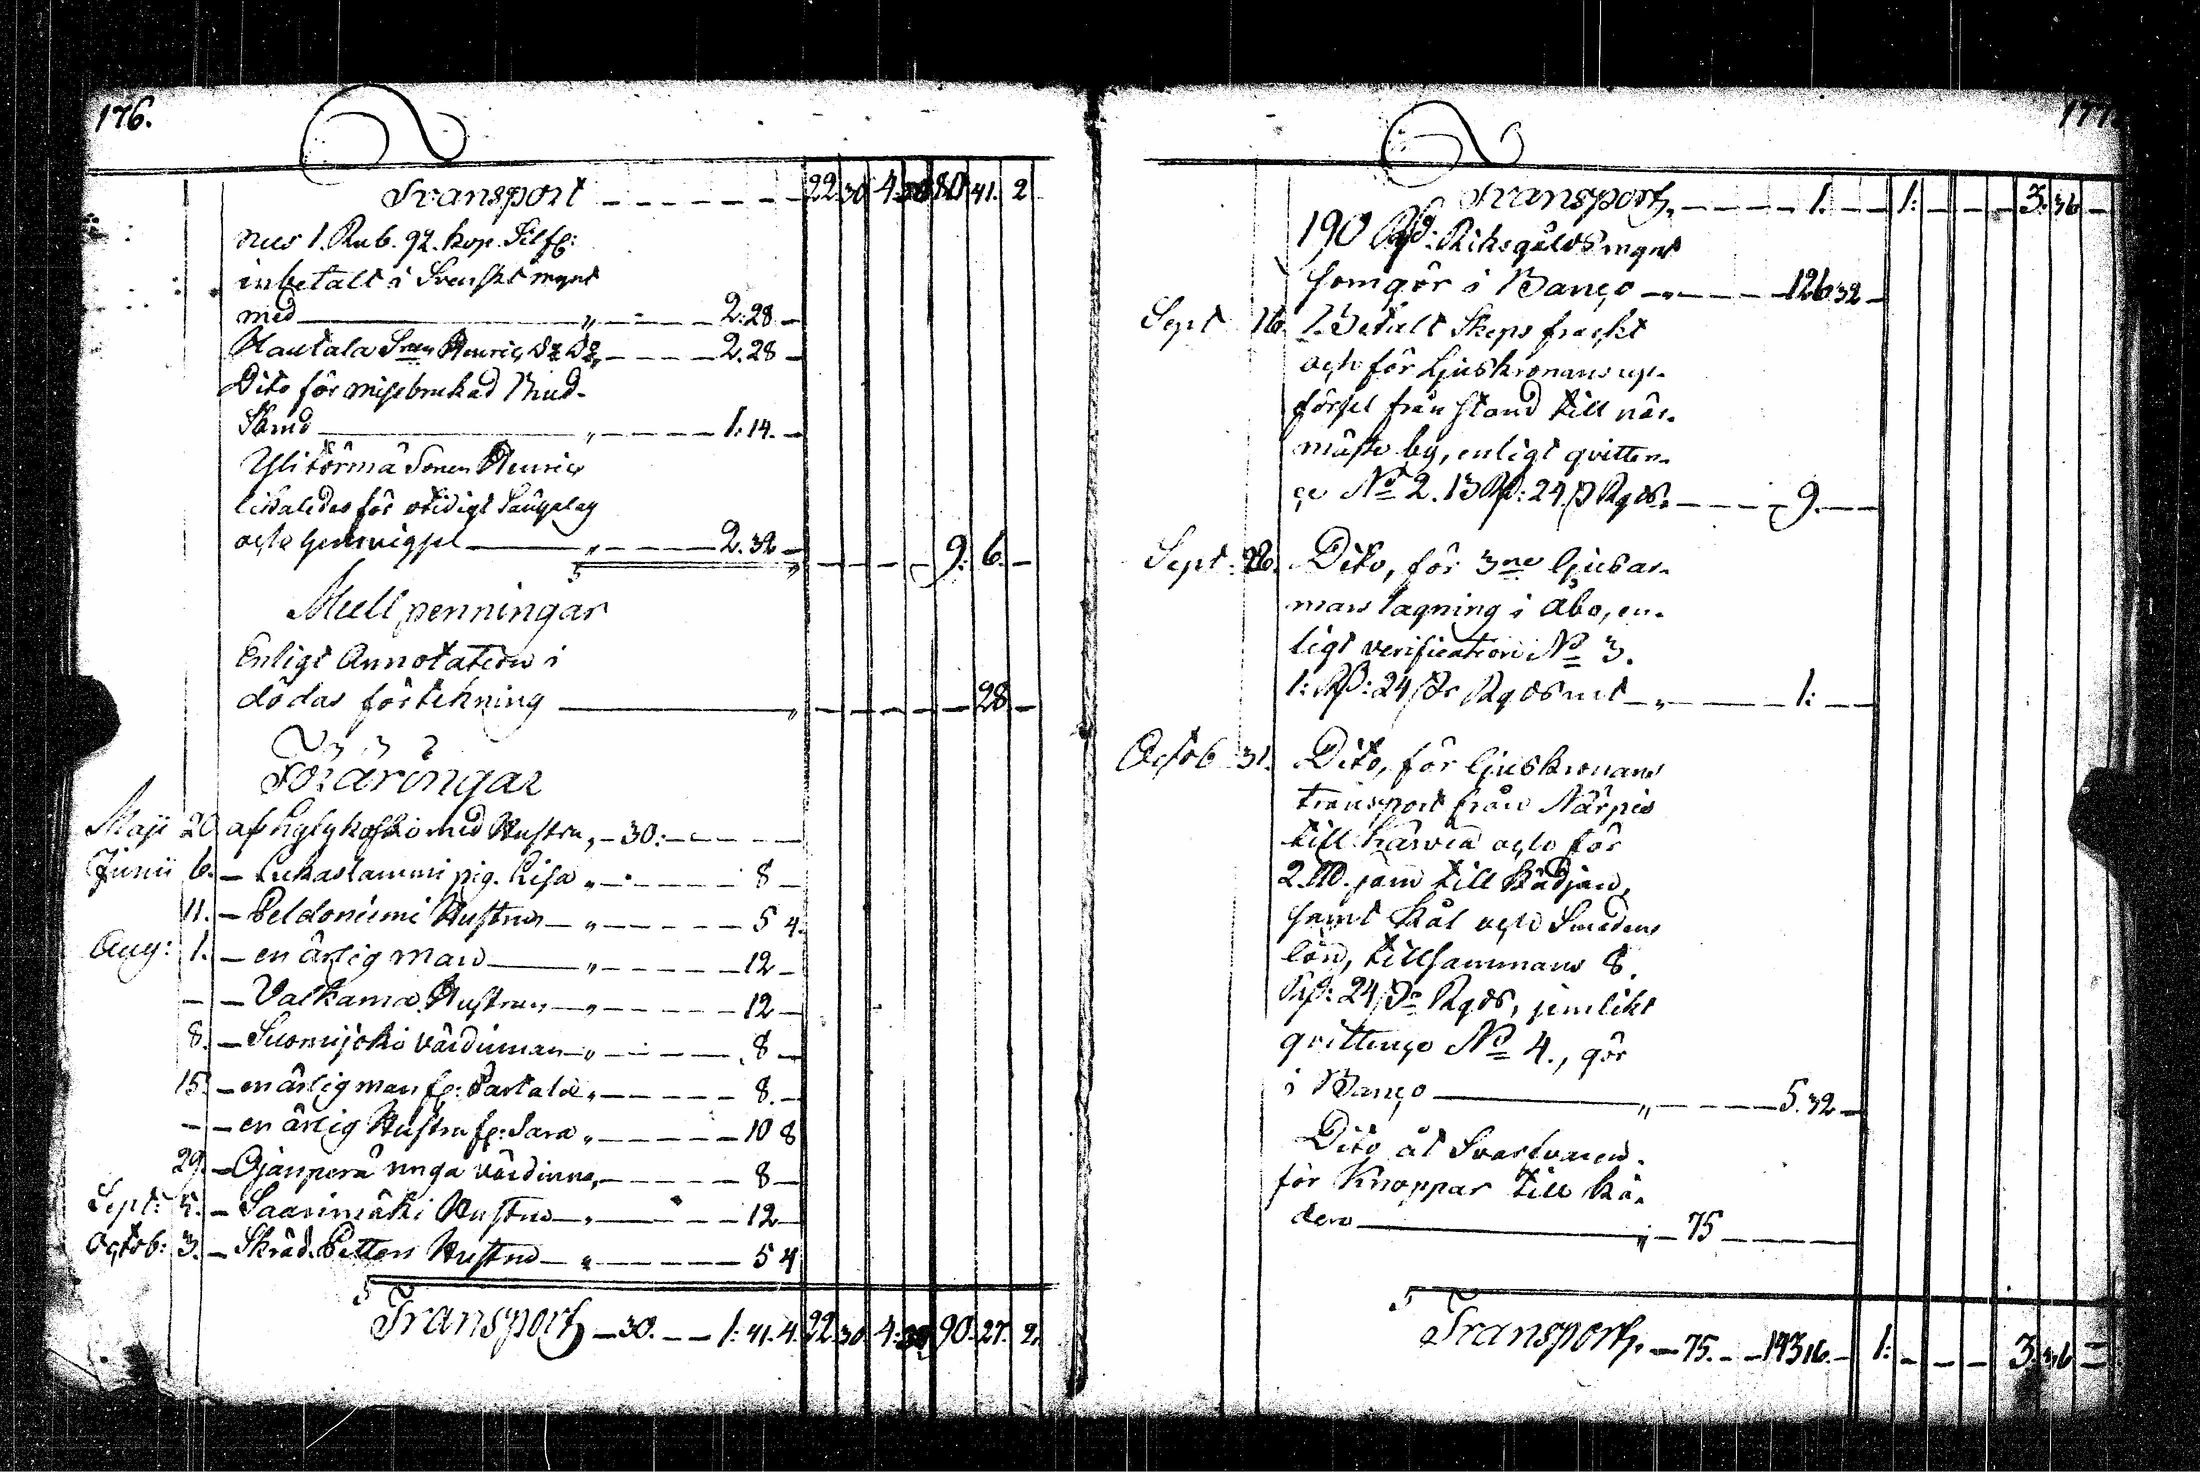 176.
Transport 22 30 4. 80 41. 2
nus 1. Rub. 92. kop. Silf:
inbetalt i Svenskt mynt
med 2:28
Hautala Henric 2.28
Dito för missbrukad Brud-
Skrud 1:14.
Ylitörmä Sonen Henric
likaledes för otidigt Sängelag
och hemvigsel 2.32 9. 6.
Mullpenningar
Enligt Annotation i
dödas förtekning 28
Föräringar
Maji 20 af Kylykoski med Hustru 30:
Junii 6. Lukaslammi pig. Lisa 8
11. Peldoniemi Hustrun 5 4.
Aug: 1. en ärlig man 12
Valkama Hustrun 12
8. Suomijoki värdinnan 8
15. en ärlig man fr: Partala 8.
en ärlig Hustru fr: Sara 10 8
29. Ojanperä unga värdinna 8
Sept: 5. Saarimäki Hustru 12
Octob: 3. Skräd. Petters Hustru 5 4
Transport 30. 1: 41. 4. 22 30 4: 90. 27. 2.
177.
Transport. 1. 1: 3. 36
190 Riksgälds mynt
som gör i Banco 126 32
Sept 16. Betalt Skeps frackt
och för Ljuskronans up-
förssel från strand till när-
mäste by, enligt qvitten-
ce No 2. 13 Rd: 24 s Rgds. 9.
Sept. 26. Dito, för 3ne ljusar-
mars lagning i Åbo, en-
ligt verification No 3.
1: Rd: 24 s Rgds mt 1:
Octob 31. Dito, för ljuskronans
transport från Närpes
till Karvia och för
2. jern till kädjan,
samt kål och Smedens
lön, tillsammans 8.
Rd: 24 s Rgds, jemlikt
qvittence No 4., gör
i Banco 5.32
Dito åt Svarfvaren
för Knoppar till kä-
dern 75
Transport. 75. 143 16. 1: 3. 36